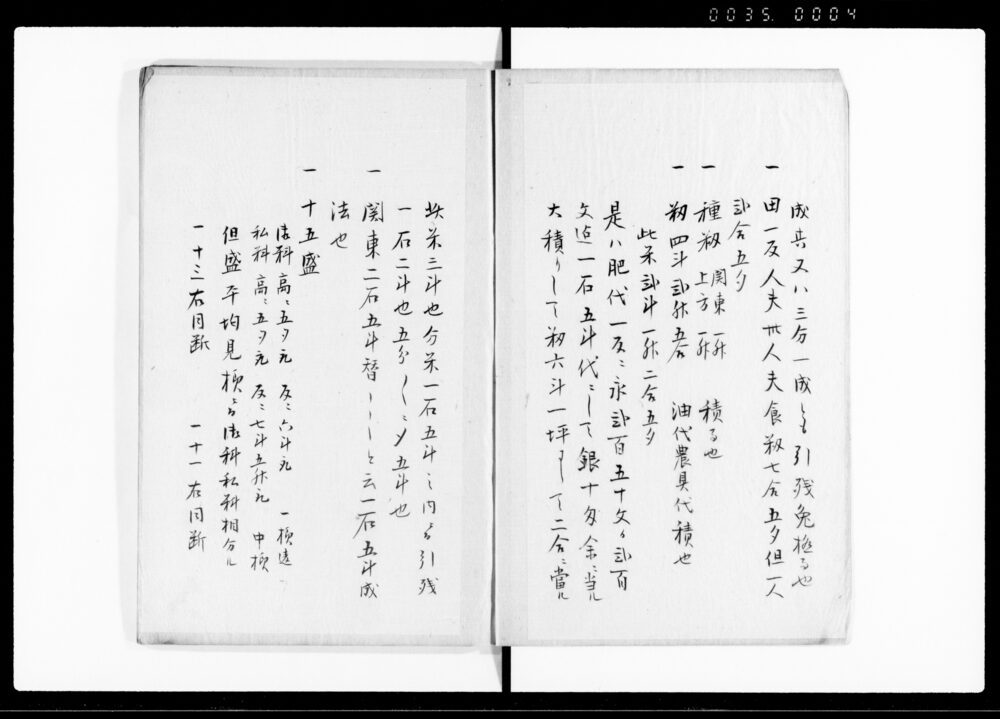 0035. 0004
成共又ハ三分一成とも引残免極る也
一 田一反人夫卅人夫食籾七合五夕但一人
弐合五夕
一 種籾 関東一升 上方一升 積る也
一 籾四斗弐升五合 油代農具代積也
此米弐斗一升二合五夕
是ハ肥代一反ニ永弐百五十文ゟ弐百
文迄一石五斗代ニして銀十匁余ニ当ル
大積りして籾六斗一坪ニして二合ニ當ル
此米三斗也分米一石五斗之内ゟ引残
一石二斗也五分一ニ〆五斗也
関東二石五斗替と云一石五斗成
法也
一 十五盛
高ニ五夕元 反ニ六斗元 一検違
私料高ニ五夕元 反ニ七斗五升元 中検
但盛平均見検ゟ私料相分ル
一十三右同断 一十一右同断